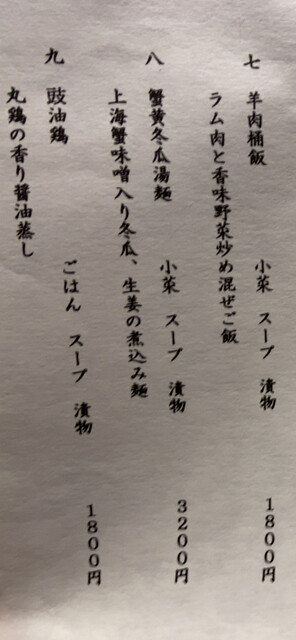 七　羊肉桶飯
ラム肉と香味野菜炒め混ぜご飯
小菜　スープ　漬物
1800円
八　蟹黄冬瓜湯麺
上海蟹味噌入り冬瓜、生姜の煮込み麺
小菜　スープ　漬物
3200円
九　豉油鶏
丸鶏の香り醤油蒸し
ごはん　スープ　漬物
1800円